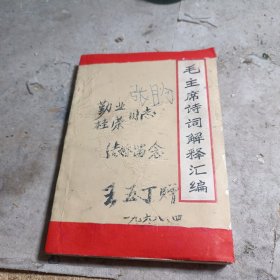 毛主席诗词解释汇编
勤业
桂荣 同志
结婚留念
王五丁赠
一九六八、四